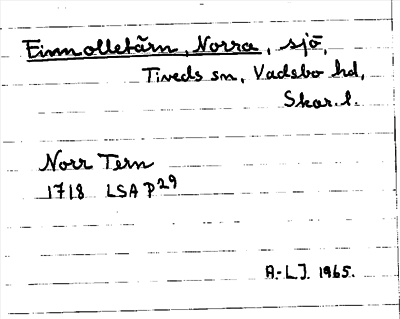 Finnolletärn, Norra, sjö,
Tiveds sn, Vadsbo hd,
Skar. l.
Norr Tern
1718 LSA P29
A.-L.J. 1965.